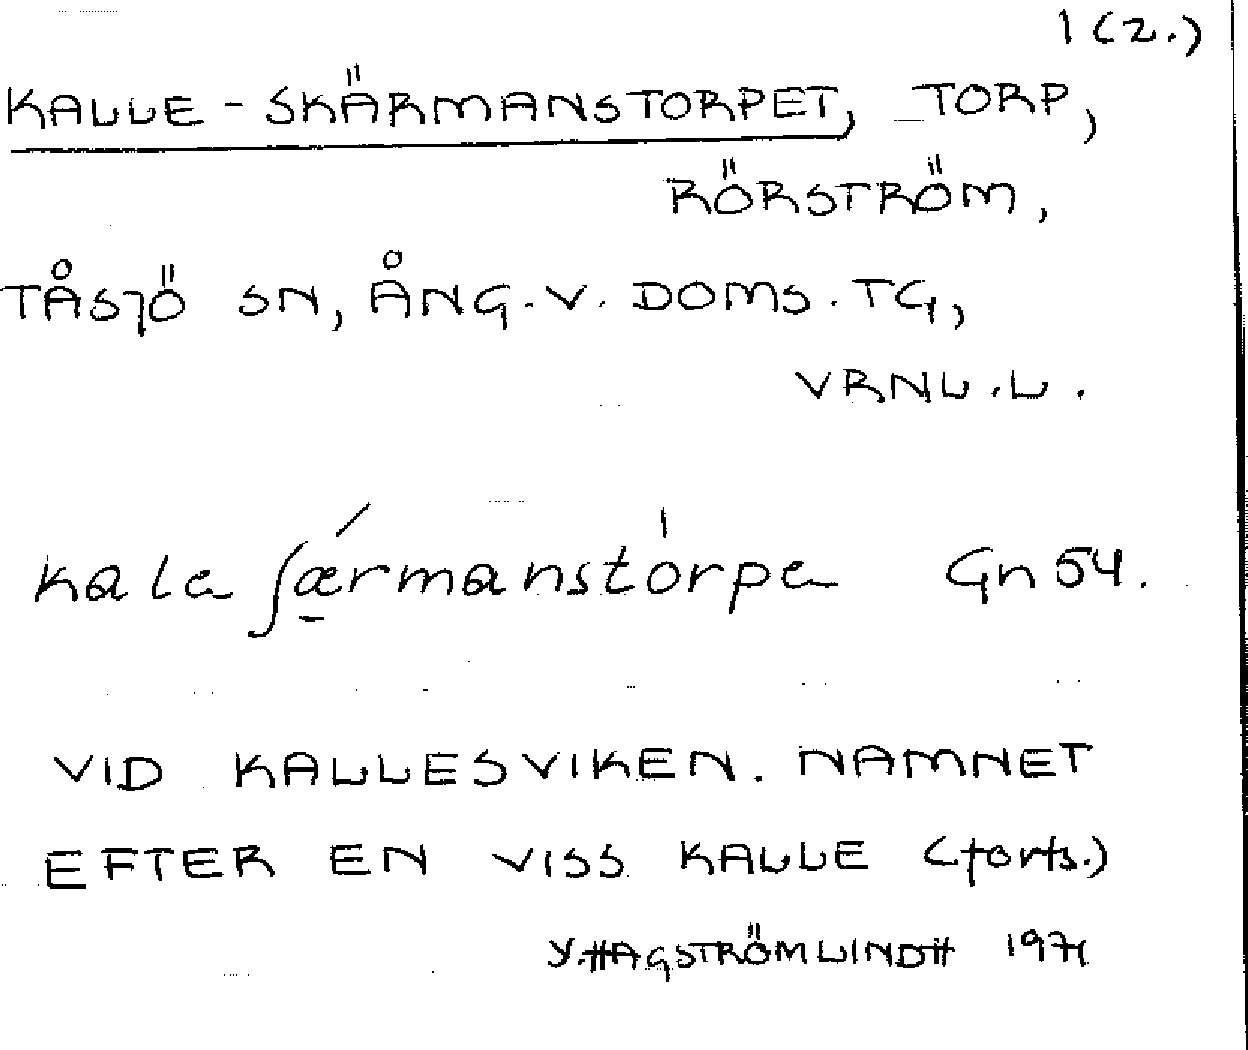 1 (2.)
KALLE-SKÄRMANSTORPET, TORP,
RÖRSTRÖM,
TÅSJÖ SN, ÅNG.V. DOMS.TG,
VRNL.L.
kala ʃærmanstórpa Gn 54.
VID KALLESVIKEN. NAMNET
EFTER EN VISS KALLE (forts.)
Y. HAGSTRÖM LINDH 1971